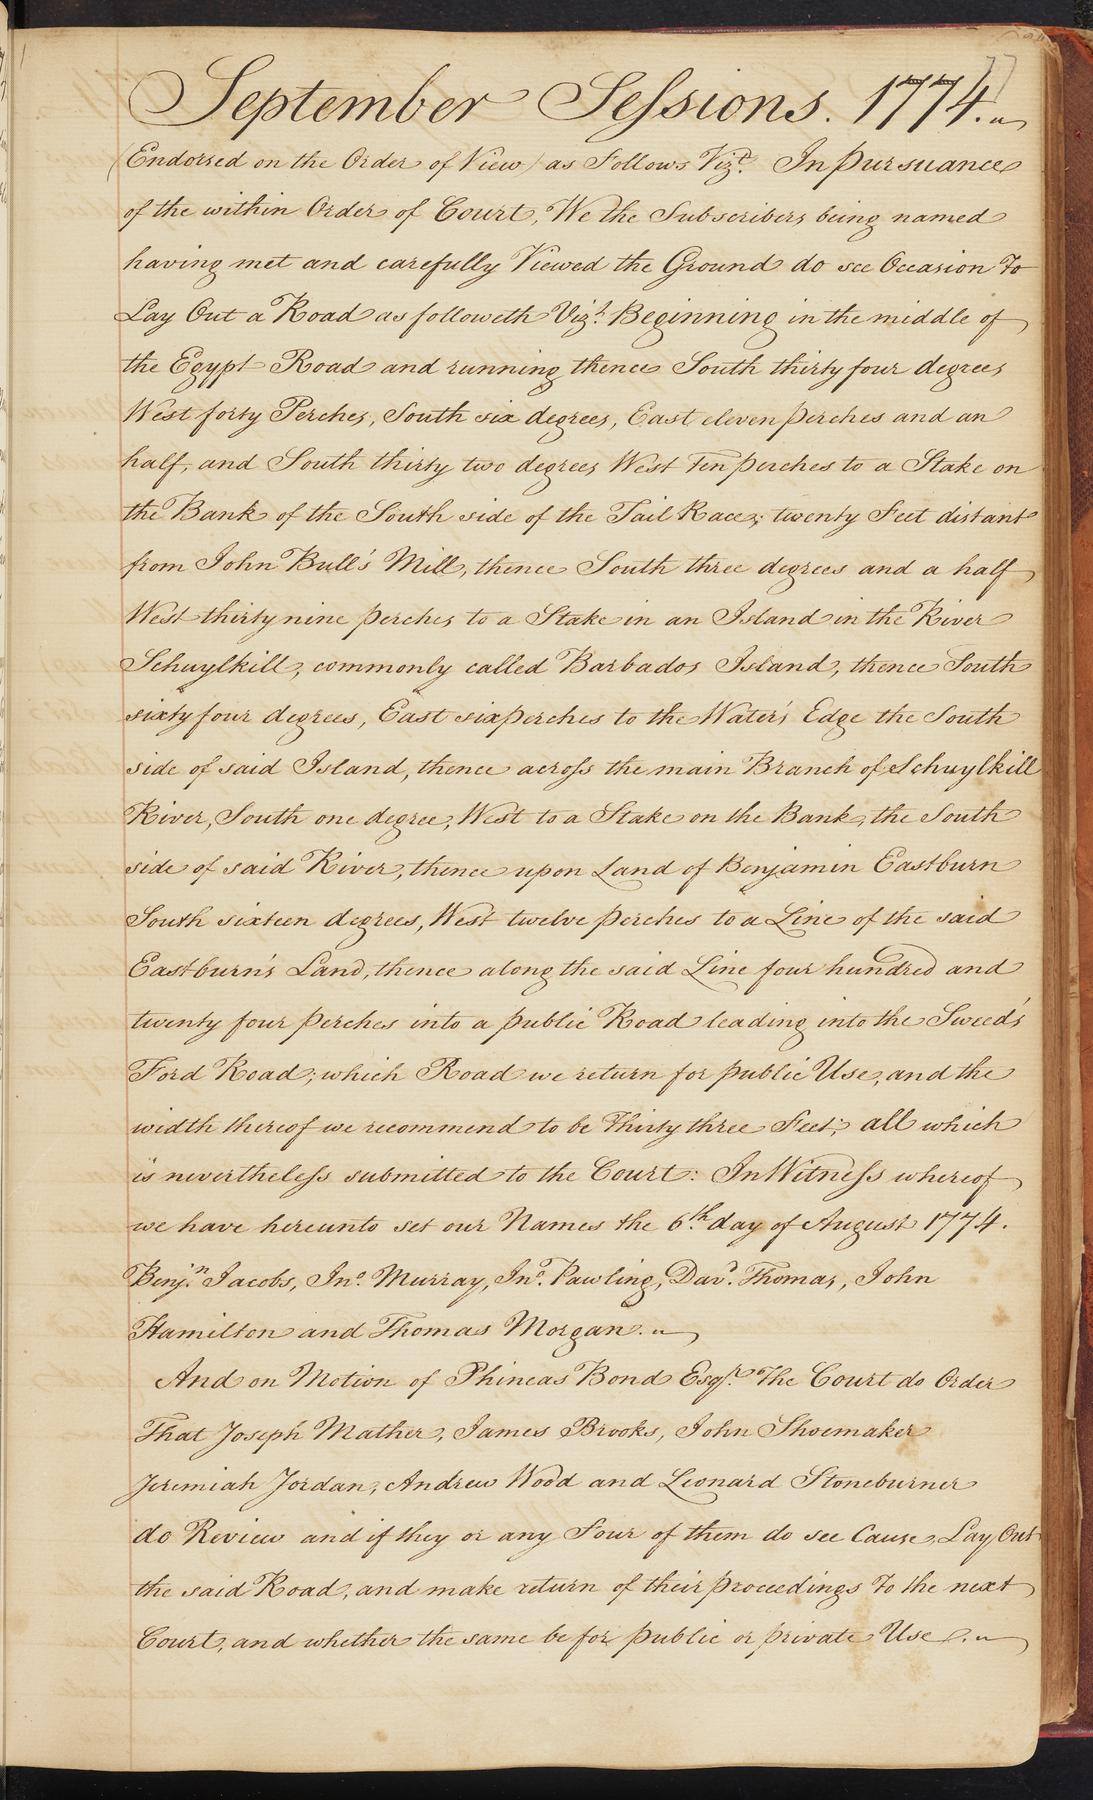 77
September Sessions. 1774.
(Endorsed on the Order of View) as Follows Vizt. In pursuance
of the within Order of Court, We the Subscribers being named
having met and carefully Viewed the Ground do see Occasion To
Lay Out a Road as followeth Vizt. Beginning in the middle of
the Egypt Road and running thence South thirty four degrees
West forty Perches, South six degrees, East eleven perches and an
half, and South thirty two degrees West Ten perches to a Stake on
the Bank of the South side of the Tail Race; twenty Feet distant
from John Bull's Mill, thence South three degrees and a half
West thirty nine perches to a Stake in an Island in the River
Schuylkill, commonly called Barbados Island, thence South
sixty four degrees, East six perches to the Water's Edge the South
side of said Island, thence across the main Branch of Schuylkill
River, South one degree, West to a Stake on the Bank, the South
side of said River, thence upon Land of Benjamin Eastburn
South sixteen degrees, West twelve perches to a Line of the said
Eastburn's Land, thence along the said Line four hundred and
twenty four perches into a public Road leading into the Sweed's
Ford Road; which Road we return for public Use, and the
width thereof we recommend to be Thirty three Feet; all which
is nevertheless submitted to the Court: In Witness whereof
we have hereunto set our Names the 6th. day of August 1774.
Benjn. Jacobs, Jno. Murray, Jno. Pawling, Davd. Thomas, John
Hamilton and Thomas Morgan.
And on Motion of Phineas Bond Esqr. The Court do Order
That Joseph Mather, James Brooks, John Shoemaker
Jeremiah Jordan, Andrew Wood and Leonard Stoneburner
do Review and if they or any Four of them do see Cause, Lay Out
the said Road, and make return of their proceedings To the next
Court, and whether the same be for public or private Use.